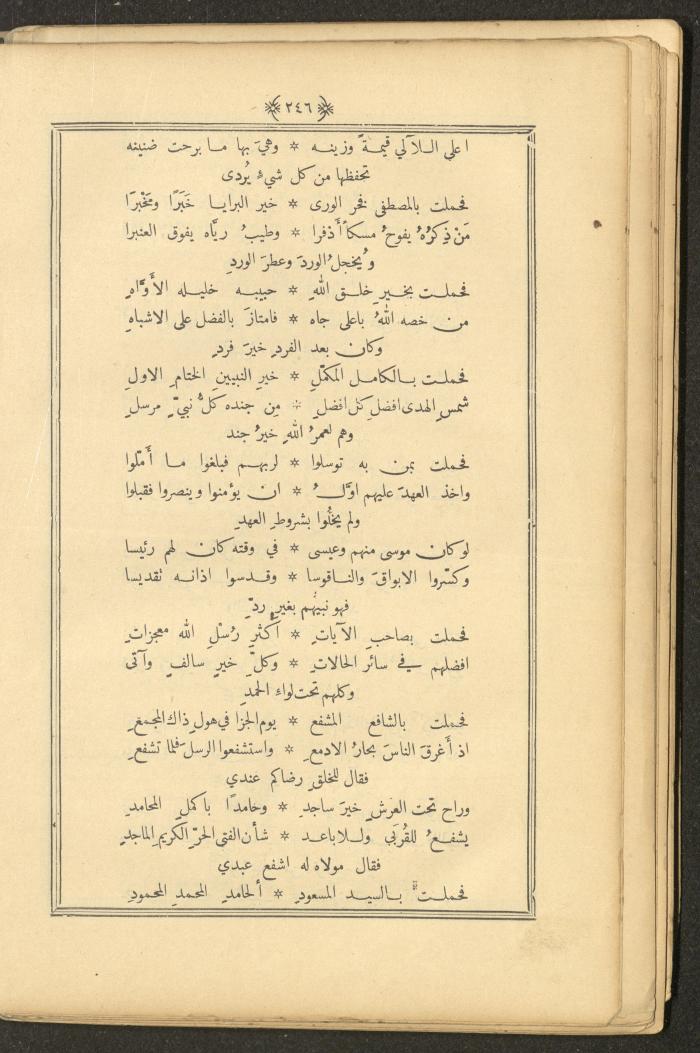 ٢٤٦
اعلى اللآلي قيمةً وزينه * وهي بها ما برحت ضنينه
تحفظها من كل شيءٍ يُردى
فحملت بالمصطفى فخر الورى * خير البرايا خَبَرًا ومَخْبَرَا
مَنْ ذِكرُهُ يفوحُ مسكاً أَذفرا * وطيبُ ريَّاه يفوق العنبرا
ويُخجلُ الوردَ وعطرَ الوردِ
فحملت بخيرِ خلق اللهِ * حبيبه خليله الأَوَّاهِ
من خصه اللهُ باعلى جاه * فامتازَ بالفضل على الاشباهِ
وكان بعد الفردِ خيرَ فردِ
فحملت بالكامل المكمّلِ * خيرِ النبيينِ الختامِ الاولِ
شمسِ الهدى افضلِ كل افضلِ * مِن جنده كلُّ نبيٍّ مرسلِ
وهم لعمرُ اللهِ خيرُ جند
فحملت بمن به توسلوا * لربهم فبلغوا ما أَمّلوا
واخذ العهدَ عليهم اوّلُ * ان يؤمنوا وينصروا فقبلوا
ولم يخلُّوا بشروطِ العهدِ
لو كان موسى منهم وعيسى * في وقته كان لهم رئيسا
وكسّروا الابواقَ والناقوسا * وقدسوا اذانه تقديسا
فهو نبيهُم بغيرِ ردِّ
فحملت بصاحبِ الآياتِ * أكثرِ رُسْلِ الله معجزاتِ
افضلهم في سائرِ الحالاتِ * وكلِّ خيرٍ سالفٍ وآتى
وكلهم تحت لواء الحمدِ
فحملت بالشافعِ المشفع * يوم الجزا في هولِ ذاك المجمعِ
اذ أَغرقَ الناسَ بحارُ الادمعِ * واستشفعوا الرسلَ فلما تشفعِ
فقال للخلقِ رضاكم عندي
وراح تحت العرشِ خيرَ ساجدِ * وحامدًا باكملِ المحامدِ
يشفعُ للقُربَي وللاباعد * شأن الفتى الحرِّ الكريمِ الماجدِ
فقال مولاه له اشفع عبدي
فحملت بالسيدِ المسعودِ * ألحامدِ المحمدِ المحمودِ